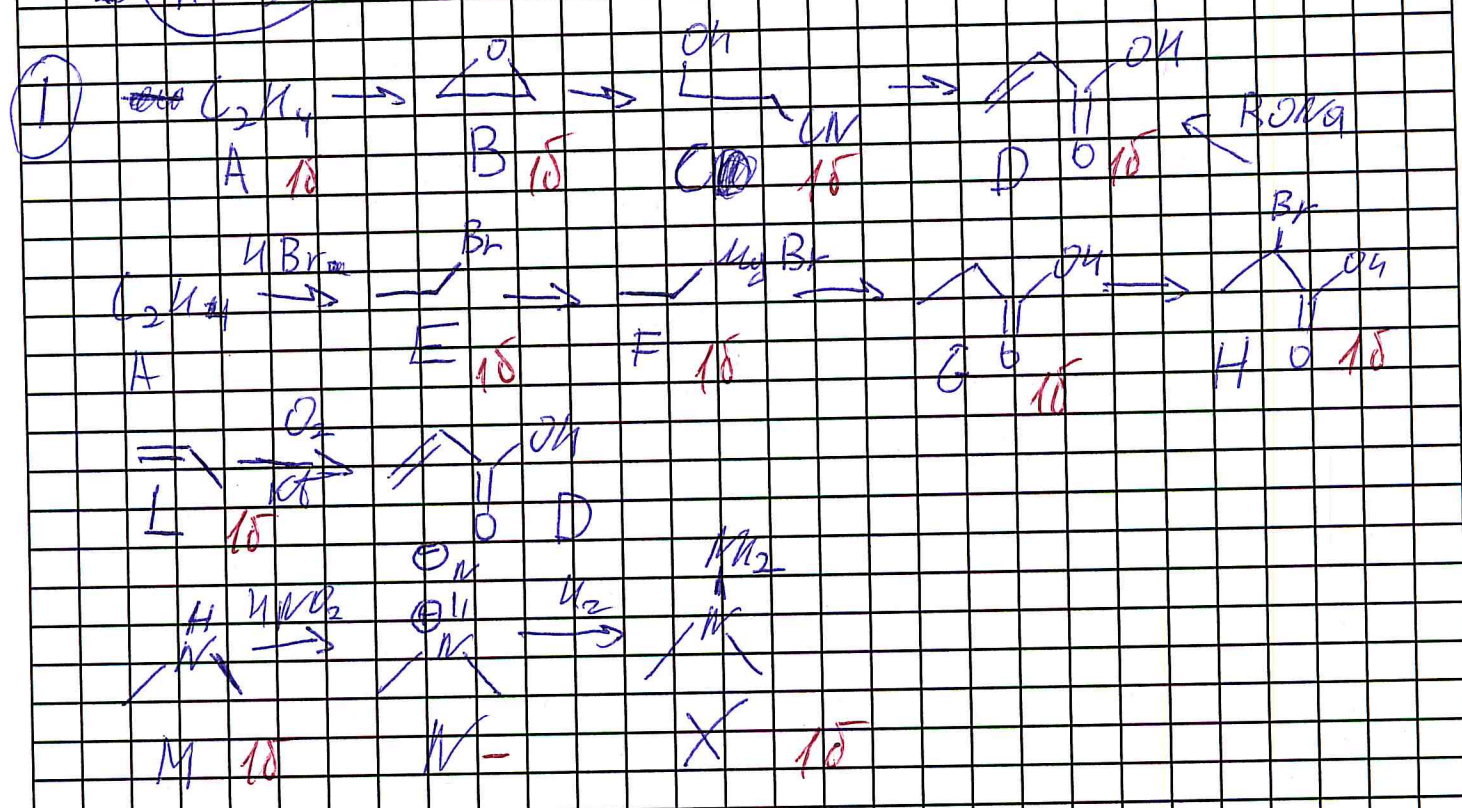 1
C2H4 → O → OH CN → OH O ← RONa
A 1б B 1б C 1б D 1б
C2H4 HBr → Br → MgBr → OH O → Br OH O
A E 1б F 1б G 1б H 1б
O2 kt → OH O
L 1б D
H N HNO2 → ⊖ N ⊕ N H2 → NH2 N
M 1б N - X 1б